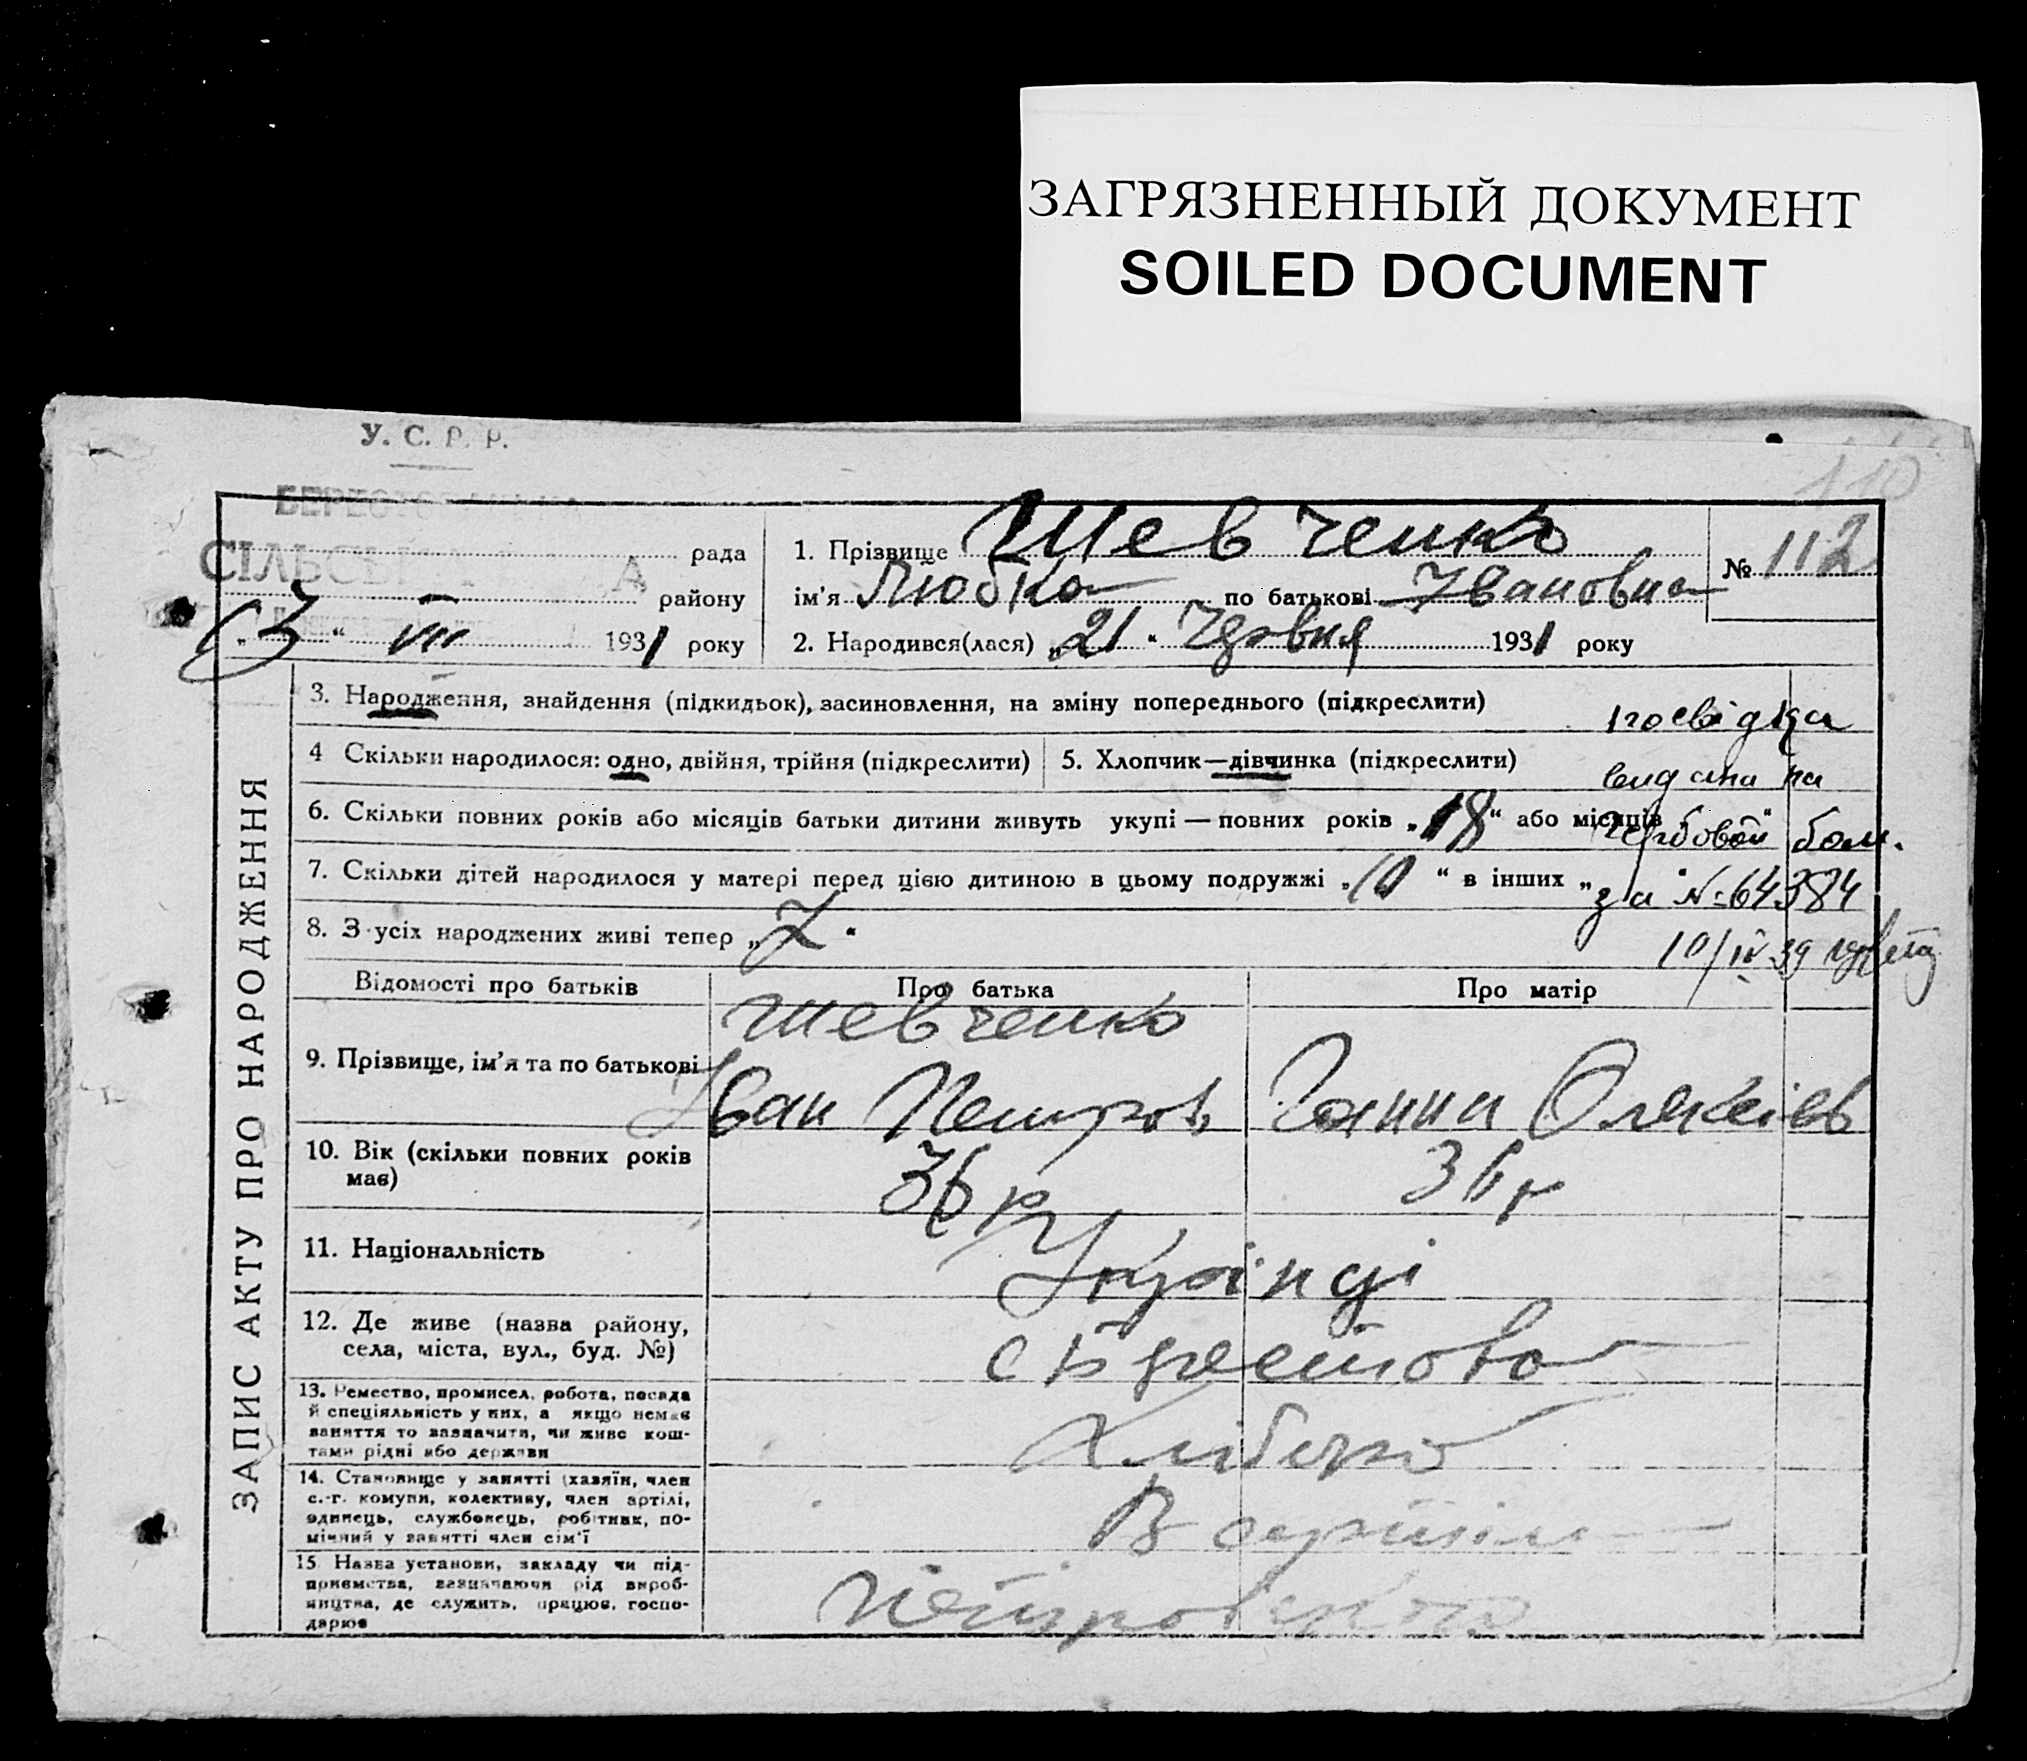 ЗАГРЯЗНЕННЫЙ ДОКУМЕНТ
SOILED DOCUMENT
У. С. Р. Р.
110
СІЛЬСЬКА рада
району
„3“ VII 1931 року
1. Прізвище Шевченко
ім’я Любка по батькові Івановна
2. Народився(лася) „21“ Червня 1931 року
№ 112
ЗАПИС АКТУ ПРО НАРОДЖЕННЯ
3. Народження, знайдення (підкидьок), засиновлення, на зміну попереднього (підкреслити)
4 Скільки народилося: одно, двійня, трійня (підкреслити)
5. Хлопчик—дівчинка (підкреслити)
6. Скільки повних років або місяців батьки дитини живуть укупі — повних років „18“ або місяців „ “
7. Скільки дітей народилося у матері перед цією дитиною в цьому подружжі „10“ в інших „ “
8. З усіх народжених живі тепер „7“
посвідка
видана на
бол.
за №64384
10/IV 39
Відомості про батьків
Про батька
Про матір
9. Прізвище, ім’я та по батькові
Шевченко
Іван Петров
Ганна Олексієв
10. Вік (скільки повних років має)
36 р
36 г
11. Національність
Українці
12. Де живе (назва району, села, міста, вул., буд. №)
с Берестова
13. Ремество, промисел, робота, посада й спеціяльність у них, а якщо немає заняття то зазначити, чи живе коштами рідні або держави
Хлібороб
14. Становище у занятті (хазяїн, член с.-г. комуни, колективу, член артілі, одинець, службовець, робітник, помічний у занятті член сім’ї
В артілі
15 Назва установи, закладу чи підприємства, зазначаючи рід виробництва, де служить, працює, господарює
Петровського